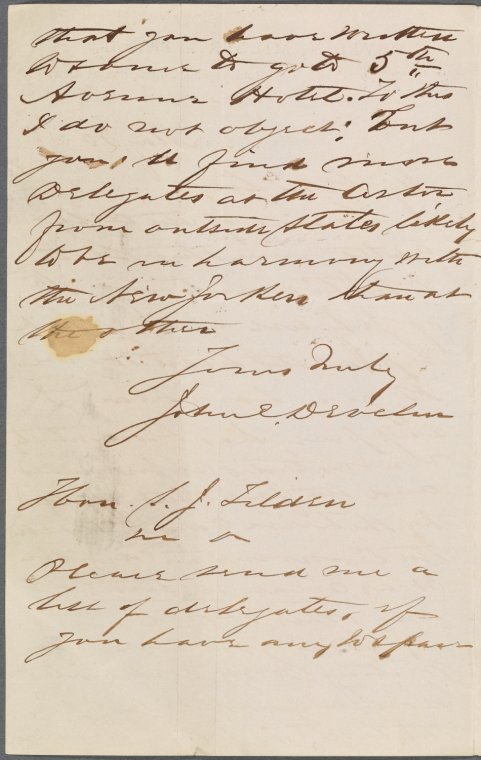 that you have written
to some to go to 5th
Avenue Hotel. To this
I do not object; but
you'll find more
Delegates at the Astor
from outside States likely
to be in harmony with
the New Yorkers than at
the other
Yours truly
John E. Develin
Hon. S. J. Tilden
Please send me a
list of delegates, if
you have any to spare